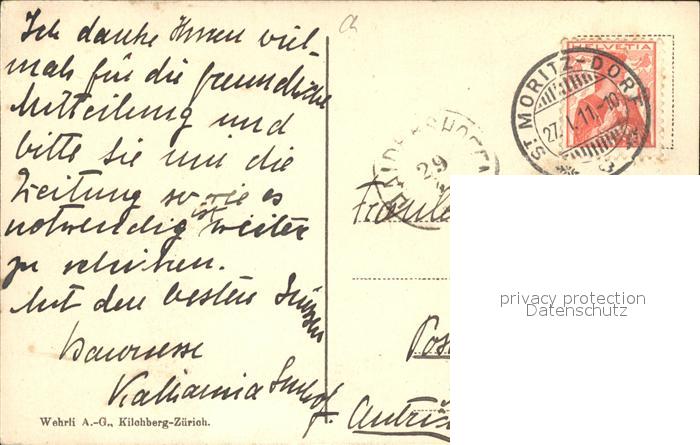 Ich danke Ihnen viel-
mals für die freundliche
Mitteilung und
bitte Sie mir die
Zeitung so wie es
notwendig ist weiter
zu schicken.
Mit den besten Grüssen
Baronesse
Katharina
Wehrli A.-G., Kilchberg-Zürich.
Ch
HELVETIA
ST. MORITZ-DORF
27. I. 11.-10
29
Fräule
Pos
privacy protection
Datenschutz